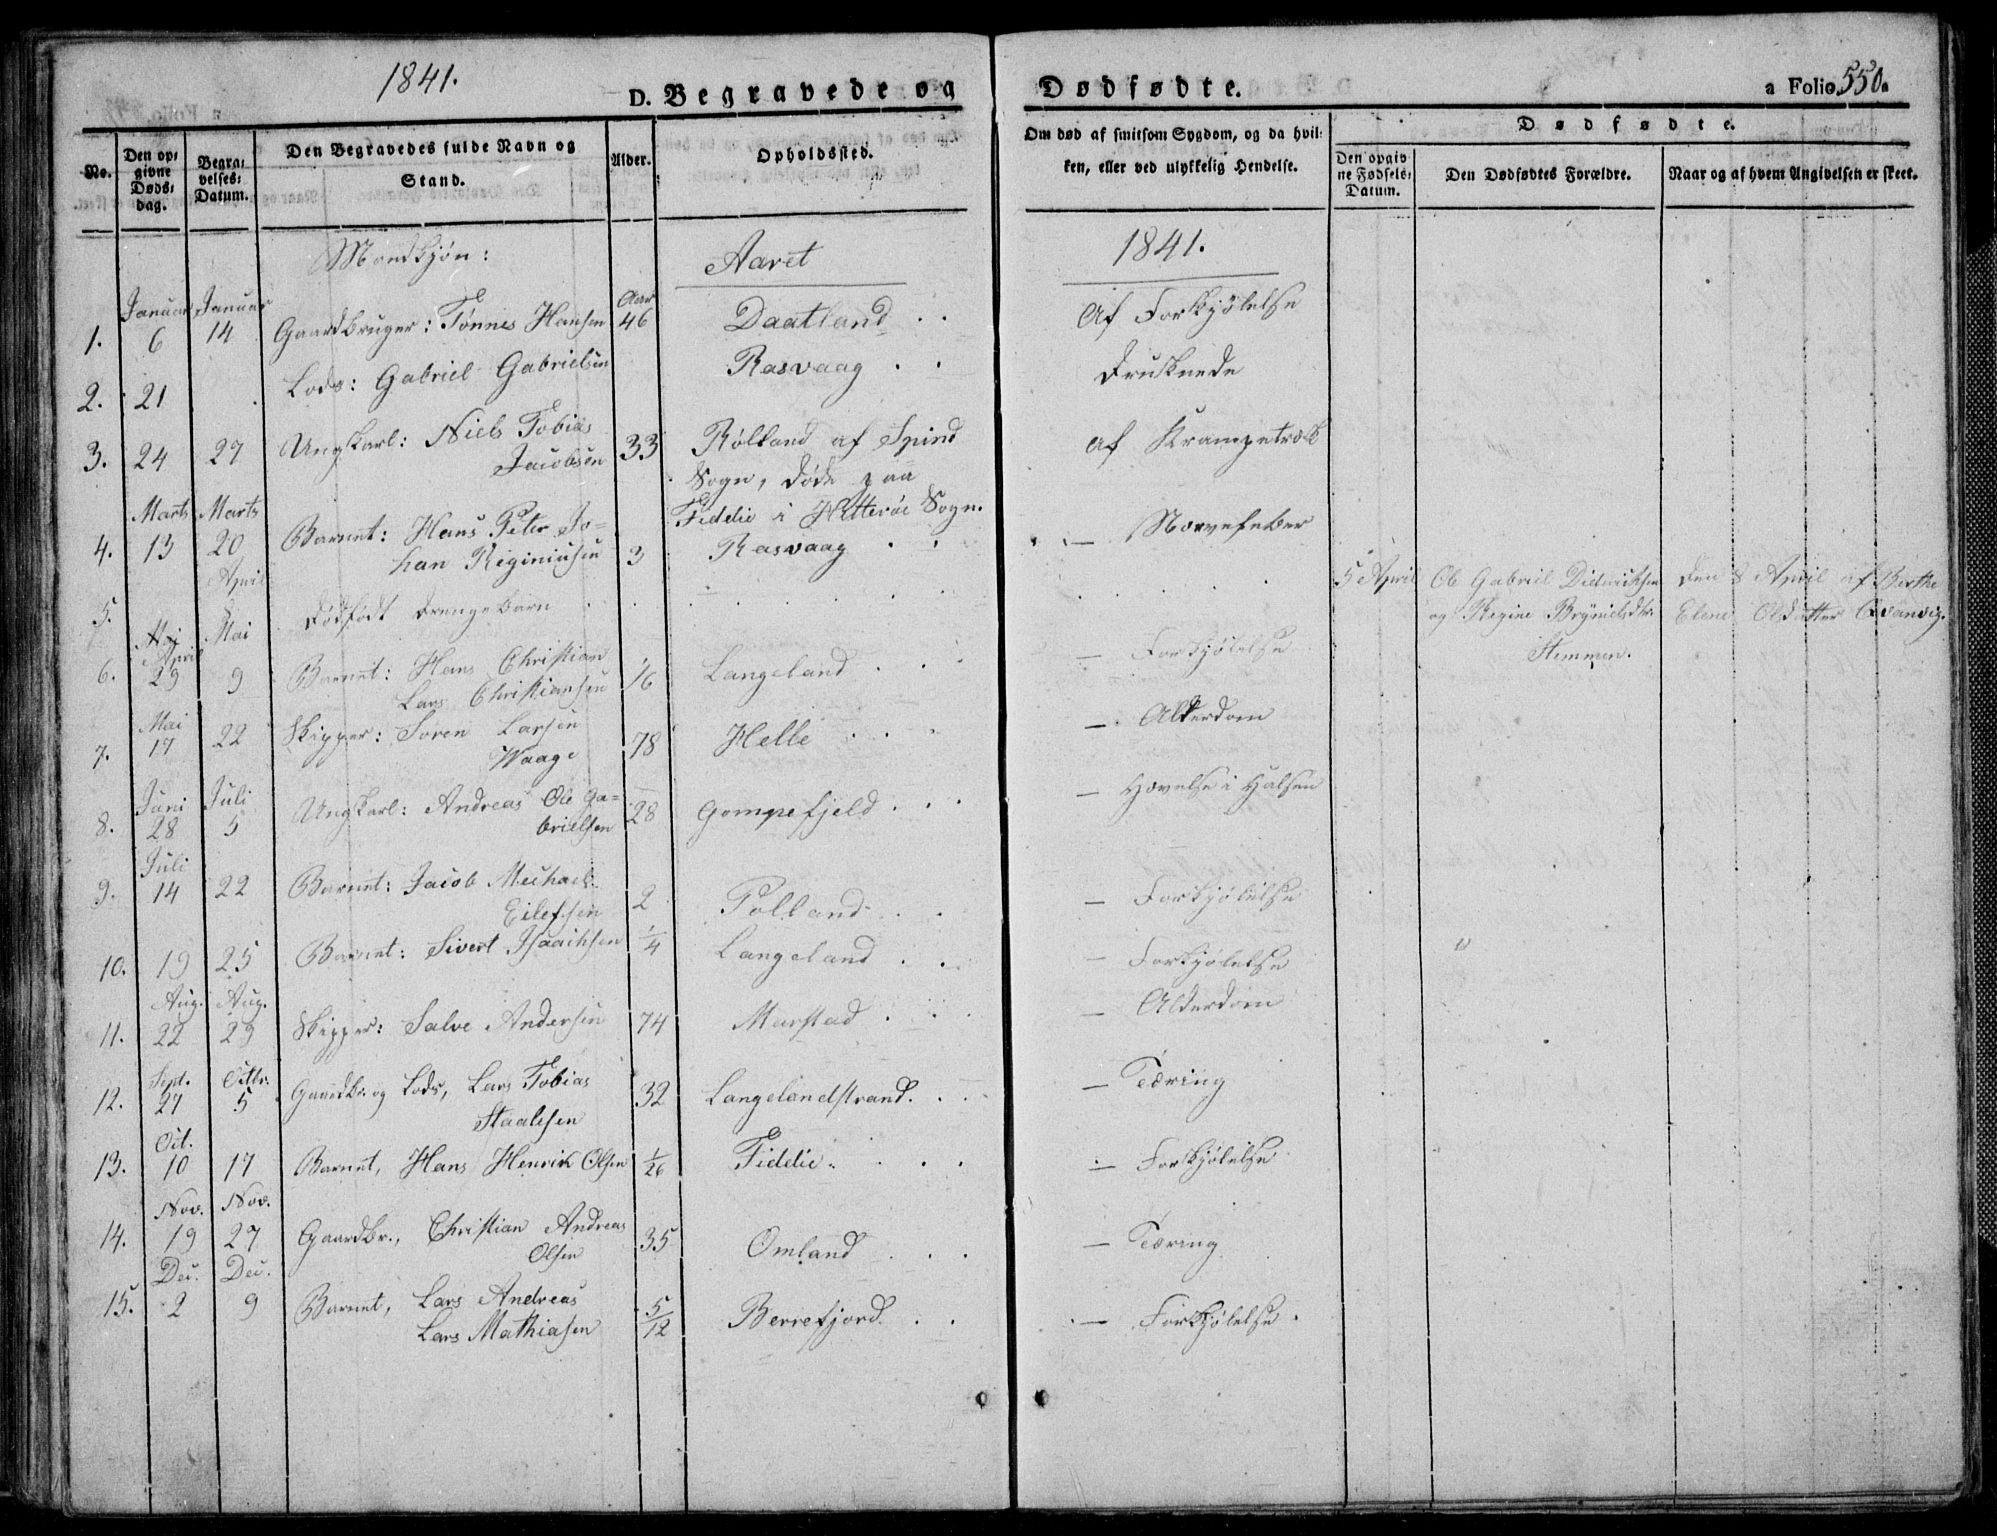 1841.
D. Begravede og Dødfødte.
a Folio 550.
No.
Den opgivne Dødsdag.
Begravelses-Datum.
Den Begravedes fulde Navn og Stand.
Alder.
Opholdssted.
Om død af smitsom Sygdom, og da hvilken, eller ved ulykkelig Hendelse.
Dødfødte.
Den opgivne Fødsels-Datum.
Den Dødfødtes Forældre.
Naar og af hvem Angivelsen er skeet.
Mandkjøn: Aaret 1841.
Januar Januar Aar
1. 6 14 Gaardbruger: Tønnes Hansen 46 Daatland Af Forkjølelse
2. 21 Lods: Gabriel Gabrielsen Rasvaag Druknede
3. 24 27 Ungkarl: Niels Tobias 33 Rølland af Spind af Krampetræk
Jacobsen Sogn, døde paa
Marts Marts Fiddie i Hitterøe Sogn.
4. 13 20 Barnet: Hans Peter Jo= 3 Rasvaag — Nervefeber
han Reginiusen
April
5. 8 Dødfødt Drengebarn 5 April Ole Gabriel Didrichsen den 8 April af Birthe
og Regine Brynildsdtr. Elene Olsdatter Qvanvig.
Stemmen.
Mai
April Mai
6. 29 9 Barnet: Hans Christian Langeland — Forkjølelse
Lars Christiansen
Mai
7. 17 22 Skipper: Soren Larsen 78 Helle — Alderdom
Waage
Juni Juli
8. 28 5 Ungkarl: Andreas Ole Ga= 28 Gompefjeld — Hævelse i Halsen
brielsen
Juli
9. 14 22 Barnet: Jacob Michael 2 Polland — Forkjølelse
Eilefsen
10. 19 25 Barnet: Sivert Isaachsen 1/4 Langeland — Forkjølelse
Aug. Aug.
11. 22 29 Skipper: Salve Andersen 74 Marstad — Alderdom
Sept. Octbr.
12. 27 5 Gaardbr. og Lods, Lars Tobias 32 Langelandstrand. — Tæring
Staalesen
Oct.
13. 10 17 Barnet, Hans Henrik Olsen 1/26 Fiddie — Forkjølelse
Nov. Nov.
14. 19 27 Gaardbr., Christian Andreas 35 Omland — Tæring
Olsen
Dec. Dec.
15. 2 9 Barnet, Lars Andreas 5/12 Berrefjord — Forkjølelse.
Lars Mathiasen